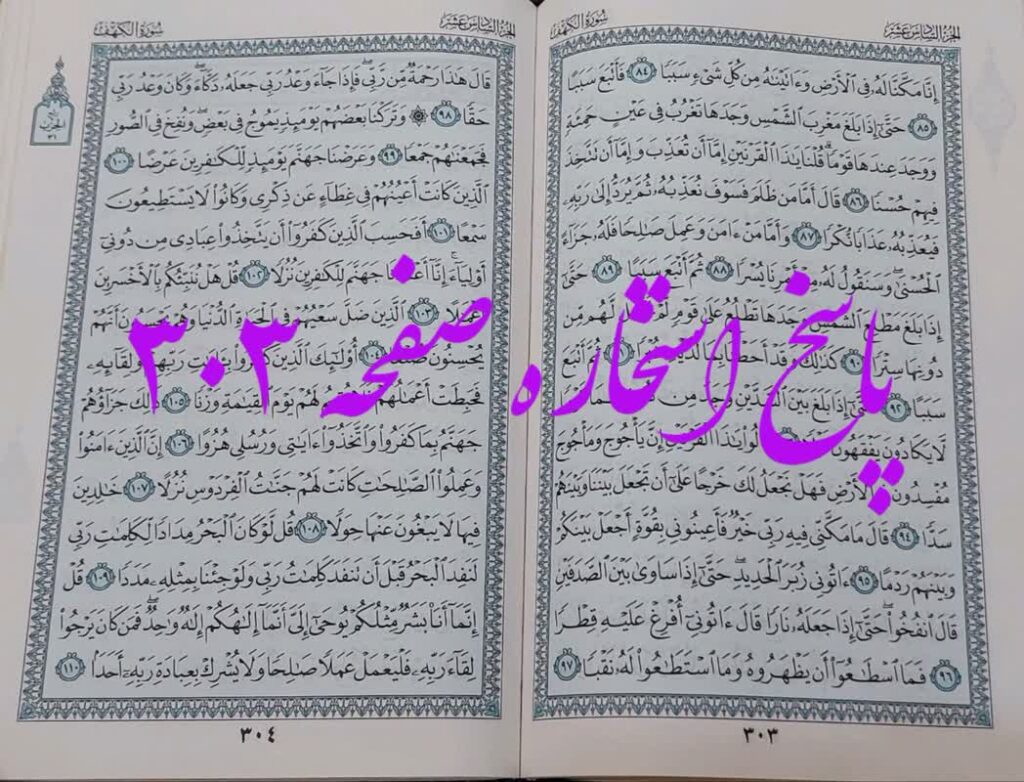 الجزء السادس عشر
سورة الكهف
إِنَّا مَكَّنَّا لَهُۥ فِي ٱلۡأَرۡضِ وَءَاتَيۡنَٰهُ مِن كُلِّ شَيۡءٖ سَبَبٗا ٨٤ فَأَتۡبَعَ سَبَبًا
٨٥ حَتَّىٰٓ إِذَا بَلَغَ مَغۡرِبَ ٱلشَّمۡسِ وَجَدَهَا تَغۡرُبُ فِي عَيۡنٍ حَمِئَةٖ
وَوَجَدَ عِندَهَا قَوۡمٗاۖ قُلۡنَا يَٰذَا ٱلۡقَرۡنَيۡنِ إِمَّآ أَن تُعَذِّبَ وَإِمَّآ أَن تَتَّخِذَ
فِيهِمۡ حُسۡنٗا ٨٦ قَالَ أَمَّا مَن ظَلَمَ فَسَوۡفَ نُعَذِّبُهُۥ ثُمَّ يُرَدُّ إِلَىٰ رَبِّهِۦ
فَيُعَذِّبُهُۥ عَذَابٗا نُّكۡرٗا ٨٧ وَأَمَّا مَنۡ ءَامَنَ وَعَمِلَ صَٰلِحٗا فَلَهُۥ جَزَآءً
ٱلۡحُسۡنَىٰۖ وَسَنَقُولُ لَهُۥ مِنۡ أَمۡرِنَا يُسۡرٗا ٨٨ ثُمَّ أَتۡبَعَ سَبَبًا ٨٩ حَتَّىٰٓ
إِذَا بَلَغَ مَطۡلِعَ ٱلشَّمۡسِ وَجَدَهَا تَطۡلُعُ عَلَىٰ قَوۡمٖ لَّمۡ نَجۡعَل لَّهُم مِّن
دُونِهَا سِتۡرٗا ٩٠ كَذَٰلِكَۖ وَقَدۡ أَحَطۡنَا بِمَا لَدَيۡهِ خُبۡرٗا ٩١ ثُمَّ أَتۡبَعَ
سَبَبًا ٩٢ حَتَّىٰٓ إِذَا بَلَغَ بَيۡنَ ٱلسَّدَّيۡنِ وَجَدَ مِن دُونِهِمَا قَوۡمٗا
لَّا يَكَادُونَ يَفۡقَهُونَ قَوۡلٗا ٩٣ قَالُواْ يَٰذَا ٱلۡقَرۡنَيۡنِ إِنَّ يَأۡجُوجَ وَمَأۡجُوجَ
مُفۡسِدُونَ فِي ٱلۡأَرۡضِ فَهَلۡ نَجۡعَلُ لَكَ خَرۡجًا عَلَىٰٓ أَن تَجۡعَلَ بَيۡنَنَا وَبَيۡنَهُمۡ
سَدّٗا ٩٤ قَالَ مَا مَكَّنِّي فِيهِ رَبِّي خَيۡرٞ فَأَعِينُونِي بِقُوَّةٍ أَجۡعَلۡ بَيۡنَكُمۡ
وَبَيۡنَهُمۡ رَدۡمًا ٩٥ ءَاتُونِي زُبَرَ ٱلۡحَدِيدِۖ حَتَّىٰٓ إِذَا سَاوَىٰ بَيۡنَ ٱلصَّدَفَيۡنِ
قَالَ ٱنفُخُواْۖ حَتَّىٰٓ إِذَا جَعَلَهُۥ نَارٗا قَالَ ءَاتُونِيٓ أُفۡرِغۡ عَلَيۡهِ قِطۡرٗا
٩٦ فَمَا ٱسۡطَٰعُوٓاْ أَن يَظۡهَرُوهُ وَمَا ٱسۡتَطَٰعُواْ لَهُۥ نَقۡبٗا ٩٧
٣٠٣
الجزء السادس عشر
سورة الكهف
قَالَ هَٰذَا رَحۡمَةٞ مِّن رَّبِّيۖ فَإِذَا جَآءَ وَعۡدُ رَبِّي جَعَلَهُۥ دَكَّآءَۖ وَكَانَ وَعۡدُ رَبِّي
حَقّٗا ٩٨ ۞ وَتَرَكۡنَا بَعۡضَهُمۡ يَوۡمَئِذٖ يَمُوجُ فِي بَعۡضٖۖ وَنُفِخَ فِي ٱلصُّورِ
فَجَمَعۡنَٰهُمۡ جَمۡعٗا ٩٩ وَعَرَضۡنَا جَهَنَّمَ يَوۡمَئِذٖ لِّلۡكَٰفِرِينَ عَرۡضًا ١٠٠
ٱلَّذِينَ كَانَتۡ أَعۡيُنُهُمۡ فِي غِطَآءٍ عَن ذِكۡرِي وَكَانُواْ لَا يَسۡتَطِيعُونَ
سَمۡعًا ١٠١ أَفَحَسِبَ ٱلَّذِينَ كَفَرُوٓاْ أَن يَتَّخِذُواْ عِبَادِي مِن دُونِيٓ
أَوۡلِيَآءَۚ إِنَّآ أَعۡتَدۡنَا جَهَنَّمَ لِلۡكَٰفِرِينَ نُزُلٗا ١٠٢ قُلۡ هَلۡ نُنَبِّئُكُم بِٱلۡأَخۡسَرِينَ
أَعۡمَٰلًا ١٠٣ ٱلَّذِينَ ضَلَّ سَعۡيُهُمۡ فِي ٱلۡحَيَوٰةِ ٱلدُّنۡيَا وَهُمۡ يَحۡسَبُونَ أَنَّهُمۡ
يُحۡسِنُونَ صُنۡعًا ١٠٤ أُوْلَٰٓئِكَ ٱلَّذِينَ كَفَرُواْ بِـَٔايَٰتِ رَبِّهِمۡ وَلِقَآئِهِۦ
فَحَبِطَتۡ أَعۡمَٰلُهُمۡ فَلَا نُقِيمُ لَهُمۡ يَوۡمَ ٱلۡقِيَٰمَةِ وَزۡنٗا ١٠٥ ذَٰلِكَ جَزَآؤُهُمۡ
جَهَنَّمُ بِمَا كَفَرُواْ وَٱتَّخَذُوٓاْ ءَايَٰتِي وَرُسُلِي هُزُوًا ١٠٦ إِنَّ ٱلَّذِينَ ءَامَنُواْ
وَعَمِلُواْ ٱلصَّٰلِحَٰتِ كَانَتۡ لَهُمۡ جَنَّٰتُ ٱلۡفِرۡدَوۡسِ نُزُلًا ١٠٧ خَٰلِدِينَ
فِيهَا لَا يَبۡغُونَ عَنۡهَا حِوَلٗا ١٠٨ قُل لَّوۡ كَانَ ٱلۡبَحۡرُ مِدَادٗا لِّكَلِمَٰتِ رَبِّي
لَنَفِدَ ٱلۡبَحۡرُ قَبۡلَ أَن تَنفَدَ كَلِمَٰتُ رَبِّي وَلَوۡ جِئۡنَا بِمِثۡلِهِۦ مَدَدٗا ١٠٩ قُلۡ
إِنَّمَآ أَنَا۠ بَشَرٞ مِّثۡلُكُمۡ يُوحَىٰٓ إِلَيَّ أَنَّمَآ إِلَٰهُكُمۡ إِلَٰهٞ وَٰحِدٞۖ فَمَن كَانَ يَرۡجُواْ
لِقَآءَ رَبِّهِۦ فَلۡيَعۡمَلۡ عَمَلٗا صَٰلِحٗا وَلَا يُشۡرِكۡ بِعِبَادَةِ رَبِّهِۦٓ أَحَدَۢا ١١٠
٣٠٤
پاسخ استخاره صفحه ۳۰۳